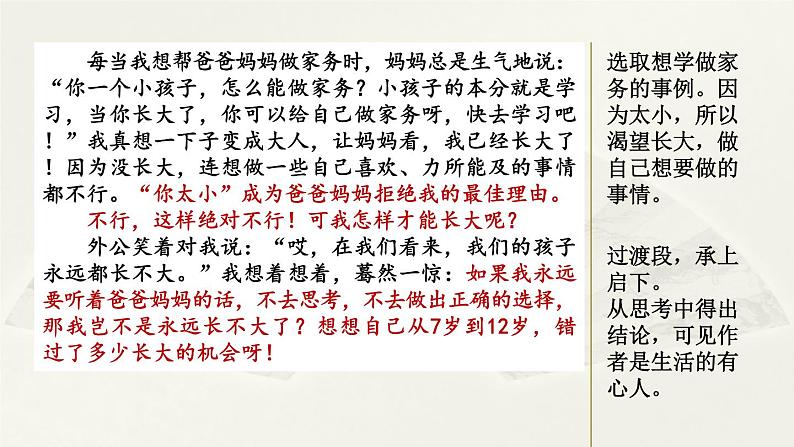 每当我想帮爸爸妈妈做家务时，妈妈总是生气地说：
“你一个小孩子，怎么能做家务？小孩子的本分就是学
习，当你长大了，你可以给自己做家务呀，快去学习吧
！”我真想一下子变成大人，让妈妈看，我已经长大了
！因为没长大，连想做一些自己喜欢、力所能及的事情
都不行。“你太小”成为爸爸妈妈拒绝我的最佳理由。
不行，这样绝对不行！可我怎样才能长大呢？
外公笑着对我说：“哎，在我们看来，我们的孩子
永远都长不大。”我想着想着，蓦然一惊：如果我永远
要听着爸爸妈妈的话，不去思考，不去做出正确的选择，
那我岂不是永远长不大了？想想自己从7岁到12岁，错
过了多少长大的机会呀！
选取想学做家
务的事例。因
为太小，所以
渴望长大，做
自己想要做的
事情。
过渡段，承上
启下。
从思考中得出
结论，可见作
者是生活的有
心人。